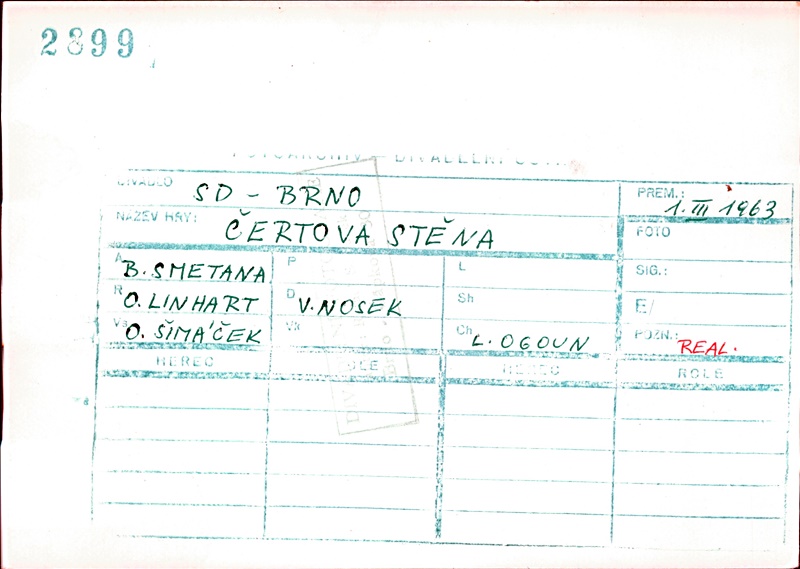 2899
DIVADLO SD - BRNO PREM.: 1. III 1963
NÁZEV HRY: ČERTOVA STĚNA FOTO
A B. SMETANA P L SIG.:
R O. LINHART D V. NOSEK Sh E/
Vs O. ŠIMÁČEK Vk Ch L. OGOUN POZN.: REAL.
HEREC ROLE HEREC ROLE